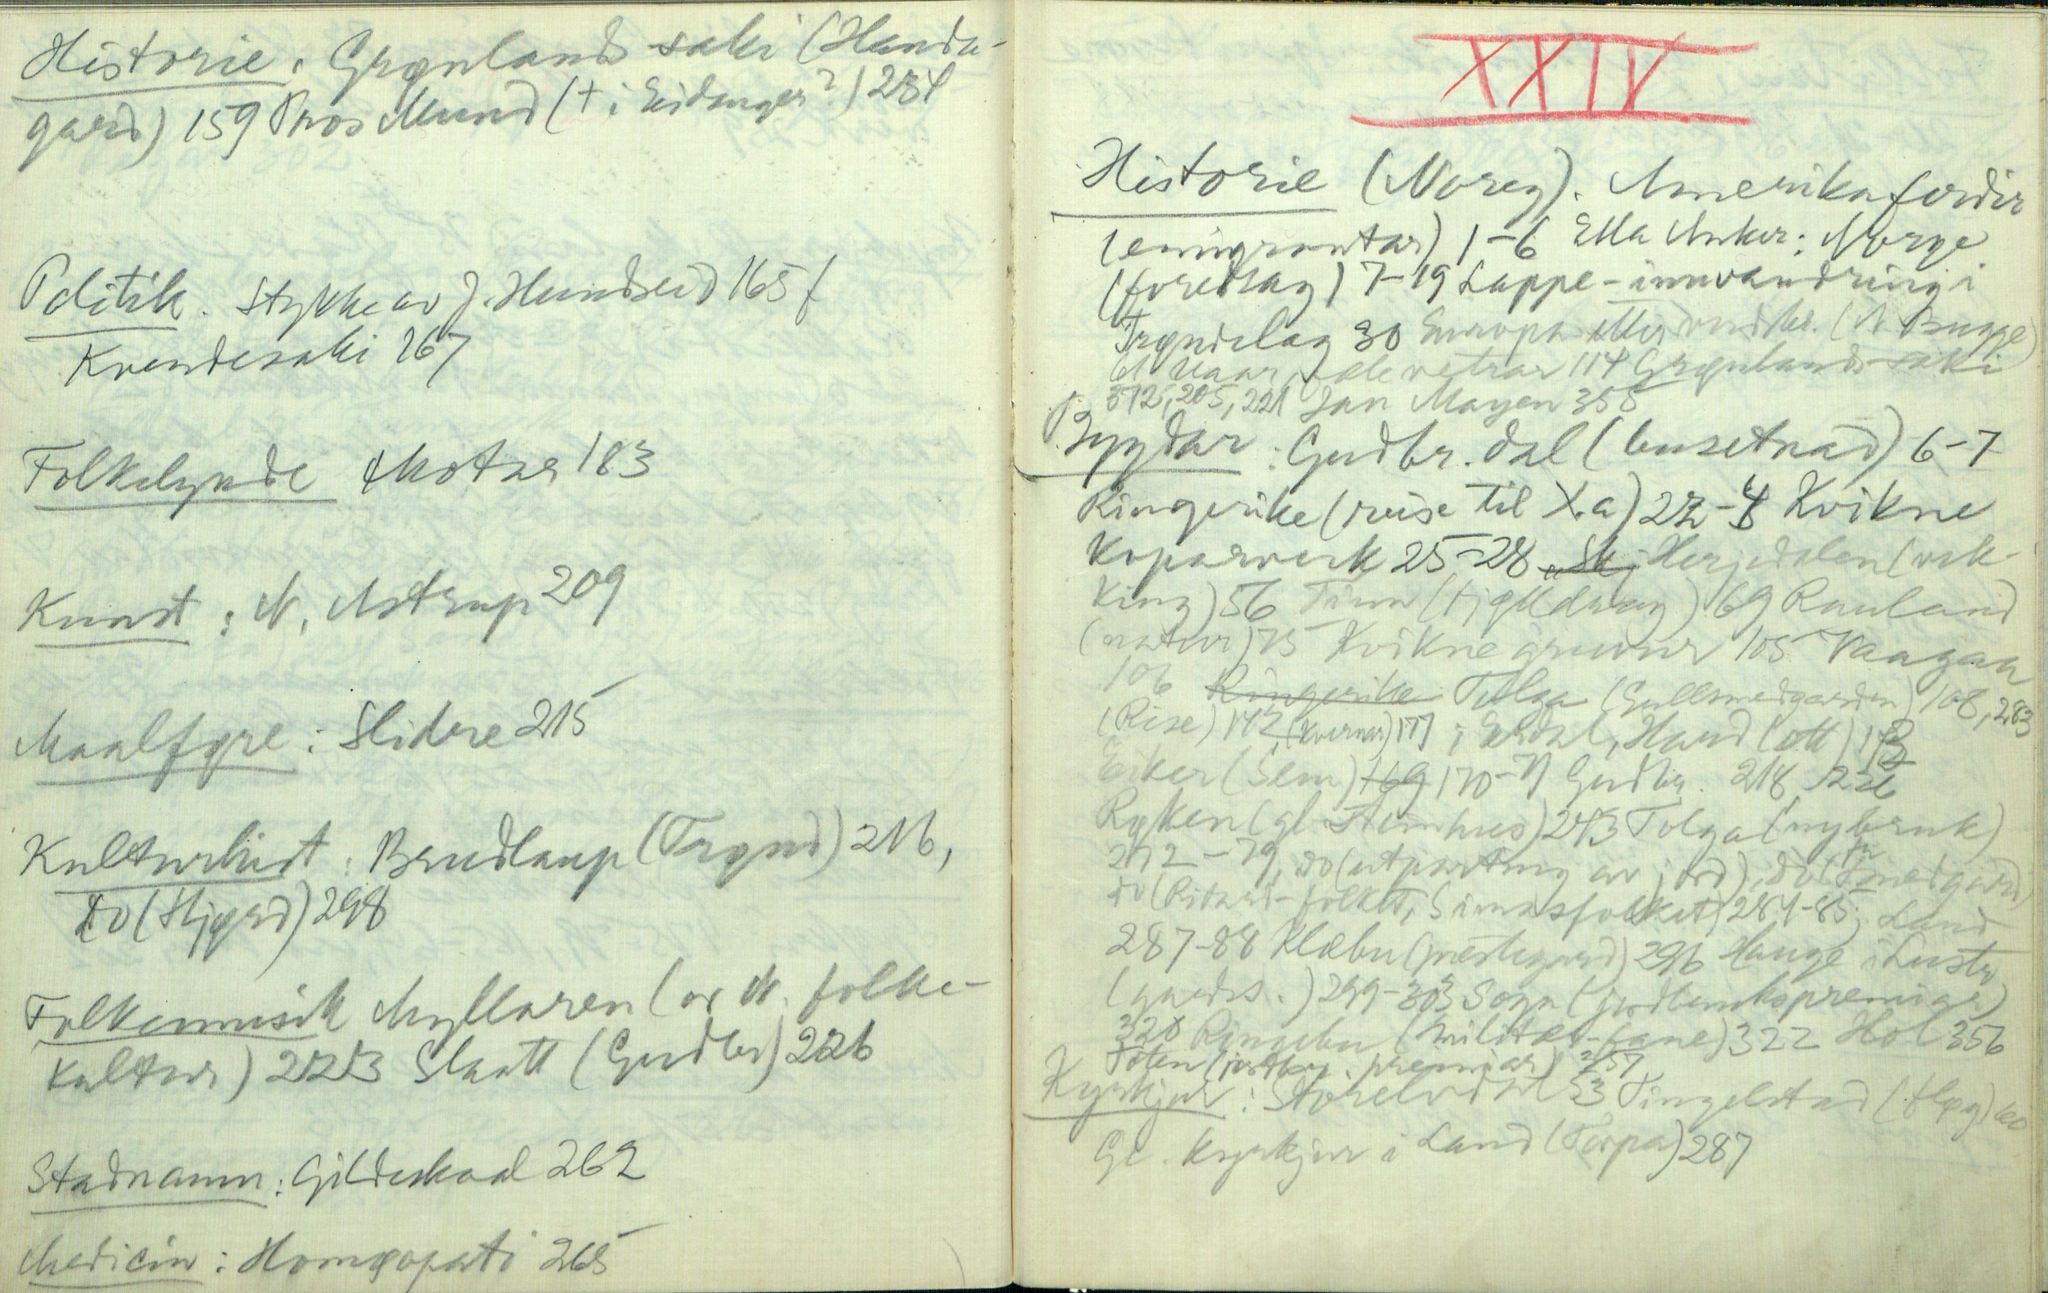 Historie: Grønlands saki (Handa-
gard) 159 Pros Mund (+ i Eidanger?) 284
Politik. Stykke av J. Hundseid 165 f
Kvendesaki 267
Folkelynde Motar 183
Kunst: N. Astrup 209
Maalføre: Slidre 215
Kulturhist: Brudlaup (Trønd) 216,
do (Hjørd) 298
Folkemusik Myllaren (av N. folke-
kultur) 2213 Slaatt (Gudbr) 226
Stadnamn: Gildeskaal 262
Medicin: Homøopati 265
XXIV
Historie (Noreg). Amerikaferdir
(emigrantar) 1-6 Ella Anker: Norge
(foredrag) 7-19 Lappe-innvandring i
Trøndelag 30 Europa (A Bugge)
61 114 Grønlands saki
205, 221 Jan Mayen 355
Bygdar: Gudbr.dal (busetnad) 6-7
Ringerike (reise til X.a) 22-4 Kvikne
Koparverk 25-28 Herjedalen (vek-
king) 56 Tinn 69 Rauland
(natur) 75 Kvikne gruvur 105 Vaagan
106 Ringerike Tolga (Gullsmedgarden) 108, 283
(Rise) 142, (kvernar) 177 i Hard
Eiker (Sem) 169 170-71 Gudbr. 218, 226
Røken (gl Steinhus) 243 Tolga (nybruk)
272-79, do (utparting av jord), do
do 284-85, Land
287-88 Klæbu (prestegard) 296 Hauge i Luster
(gards.) 299-303 Sogn (jordbrukspremiar)
320 Ringebu (militær-fane) 322 Hol 356
Toten (jordbr. premiar) 257
Kyrkjur: Storelvdal 53 Tingelstad
Gl. kyrkjur i Land (Torpa) 287